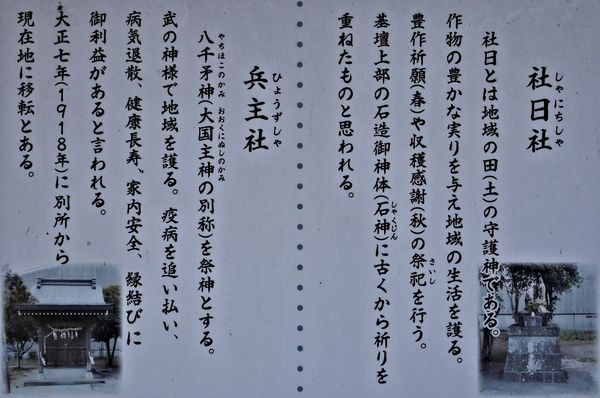 社日社
しゃにちしゃ
社日とは地域の田(土)の守護神である。
作物の豊かな実りを与え地域の生活を護る。
豊作祈願(春)や収穫感謝(秋)の祭祀を行う。
さいし
基壇上部の石造御神体(石神)に古くから祈りを
しゃくじん
重ねたものと思われる。
兵主社
ひょうずしゃ
八千矛神(大国主神の別称)を祭神とする。
やちほこのかみ おおくにぬしのかみ
武の神様で地域を護る。疫病を追い払い、
病気退散、健康長寿、家内安全、縁結びに
御利益があると言われる。
大正七年(1918年)に別所から
現在地に移転とある。